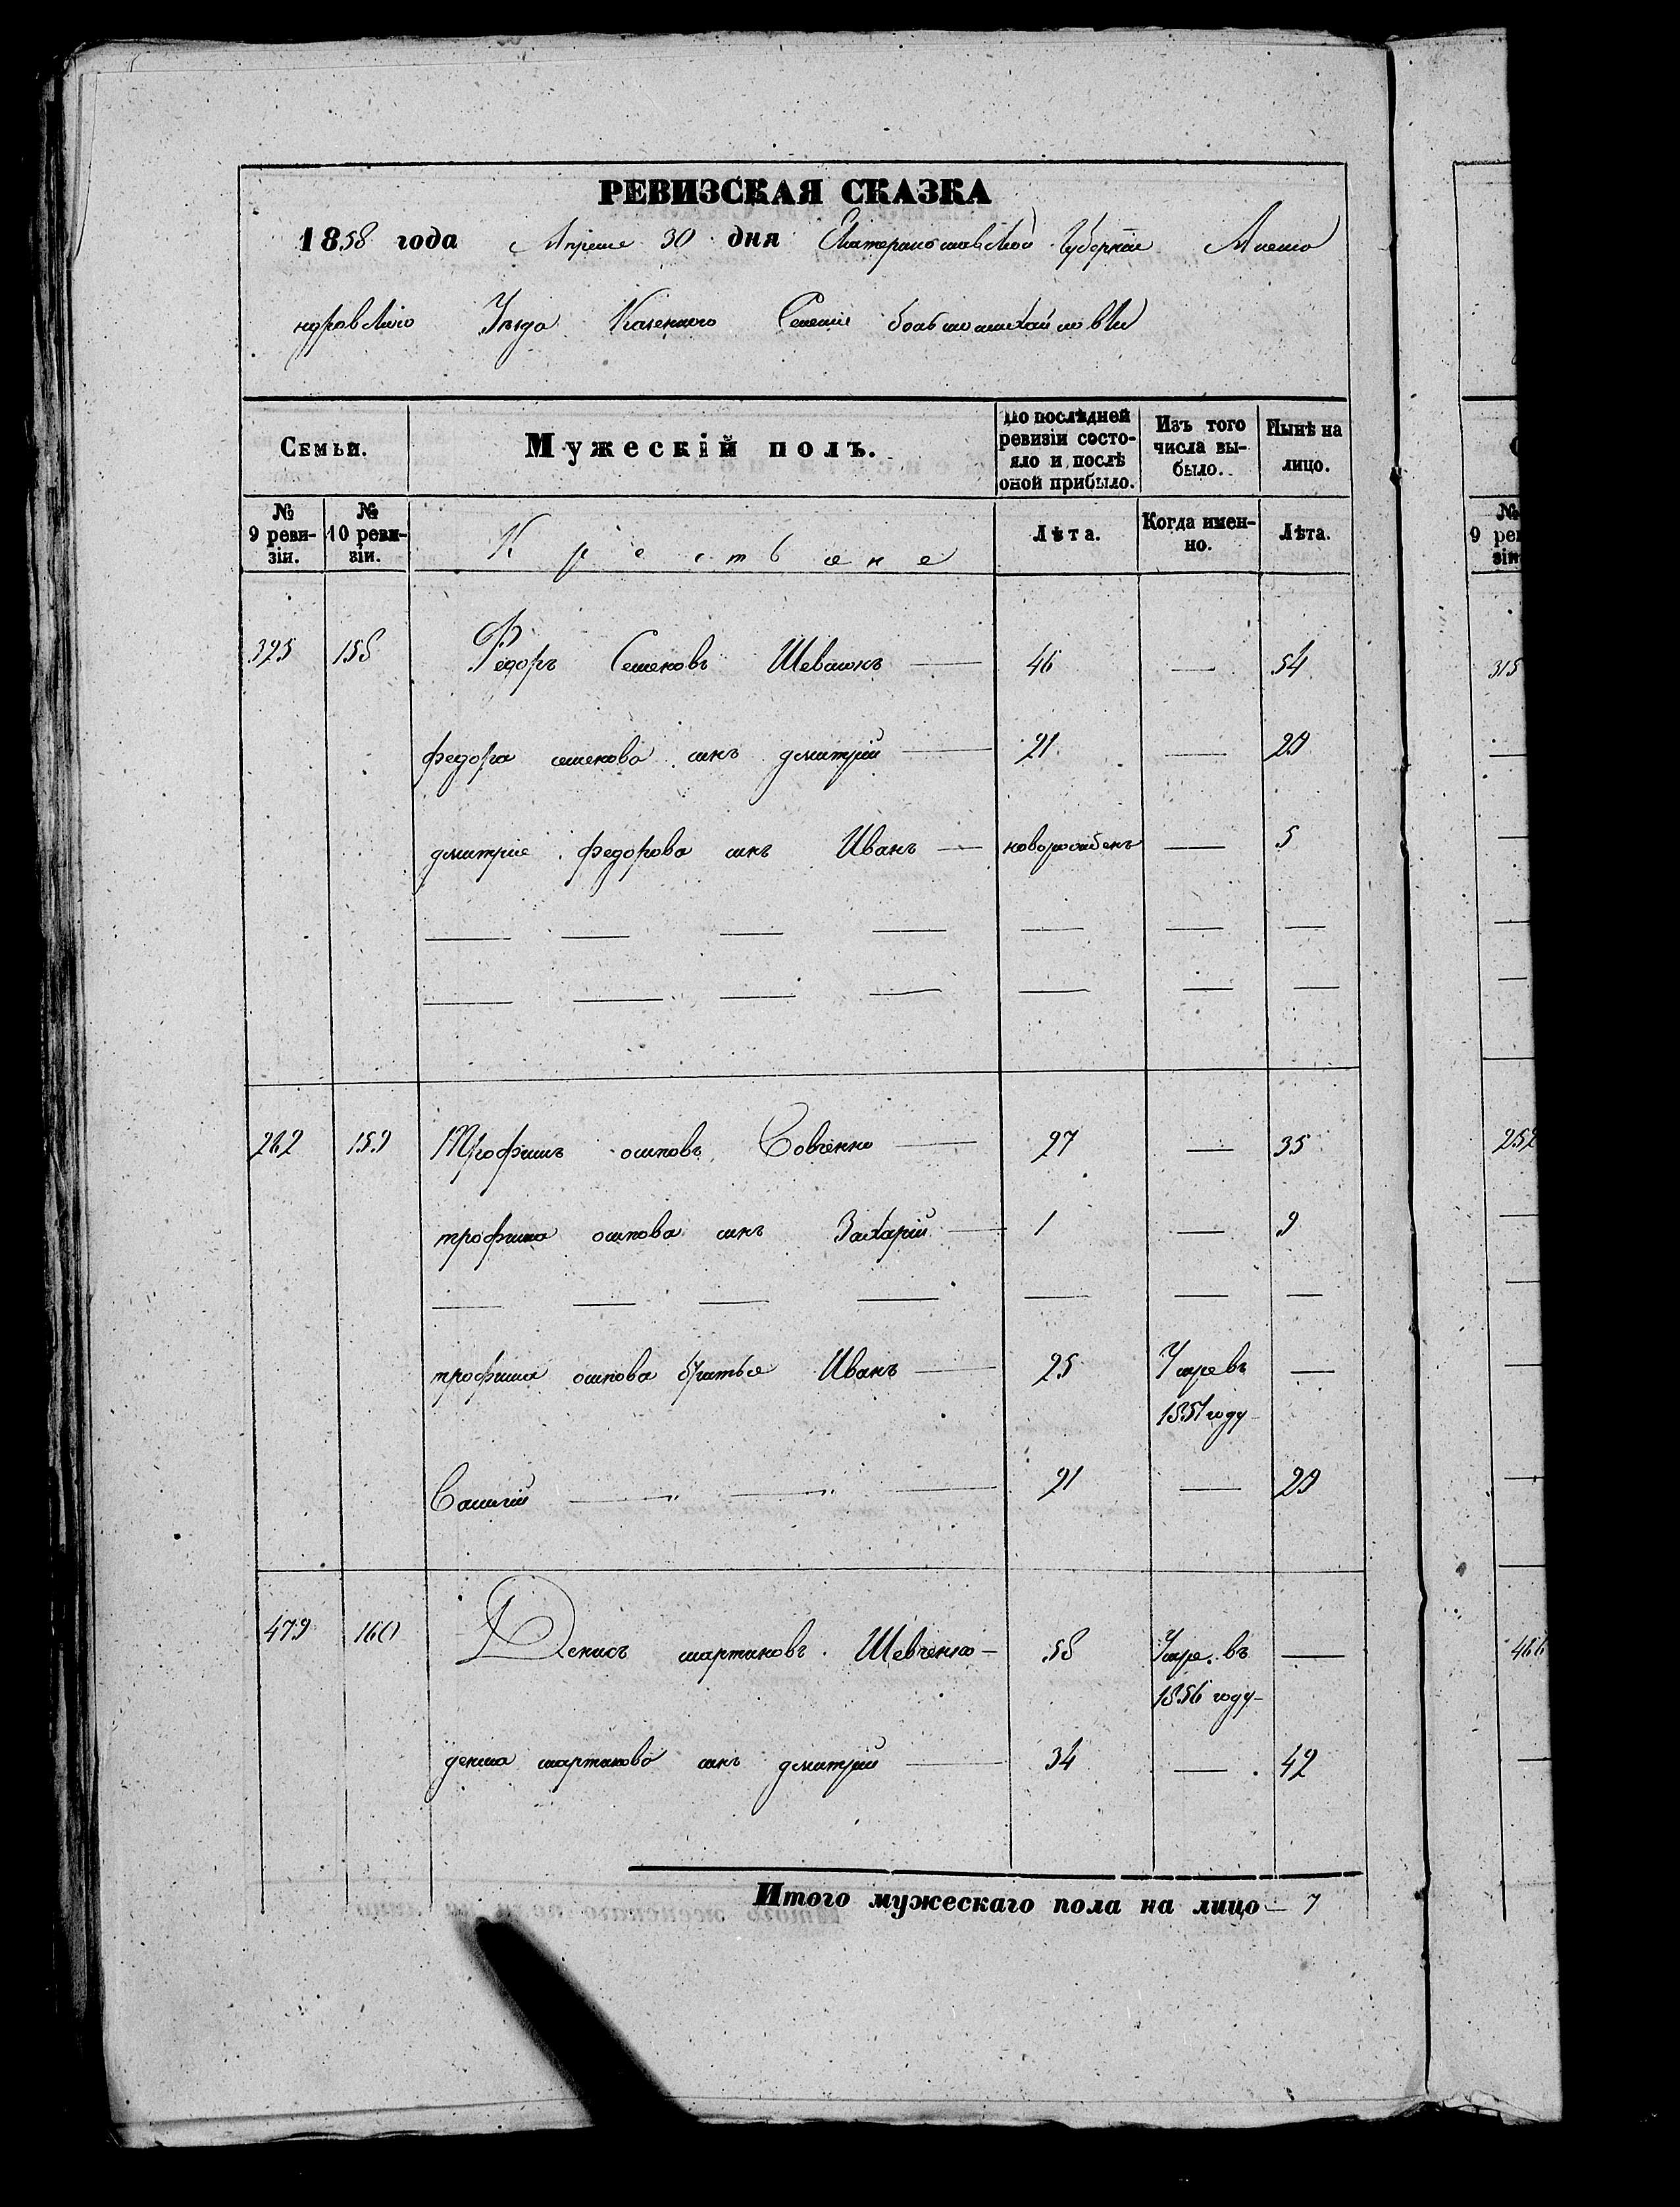 РЕВИЗСКАЯ СКАЗКА
1858 года Апреля 30 дня Екатеринославской Губернiи Алекса
ндровскаго Уезда Казеннаго Селенiя большомихайловки
Семьи. Мужескiй полъ. По послѣдней ревизiи состо-яло и послѣ оной прибыло. Изъ того числа вы-было. Нынѣ на лицо.
№ 9 реви-зiи. № 10 реви-зiи. Крестьяне Лѣта. Когда имен-но. Лѣта.
325 158 Федоръ Семеновъ 46 — 54
федора семенова сынъ дмитрiй — 21 — 29
дмитрiя федорова сынъ Иванъ — новорожденъ — 5
159 Трофимъ осиповъ Совченко — 27 — 35
трофима осипова сынъ Захарiй — 1 — 9
трофима осипова братья Иванъ — 25 Умре въ —
1851 году
Василiй — " — " — 21 — 29
479 160 Денисъ мартиновъ Шевченко — 58 Умре въ —
1856 году
дениса мартинова сынъ дмитрiй — 34 — 42
Итого мужескаго пола на лицо — 7
№
9 рев
зiи
315
252
466